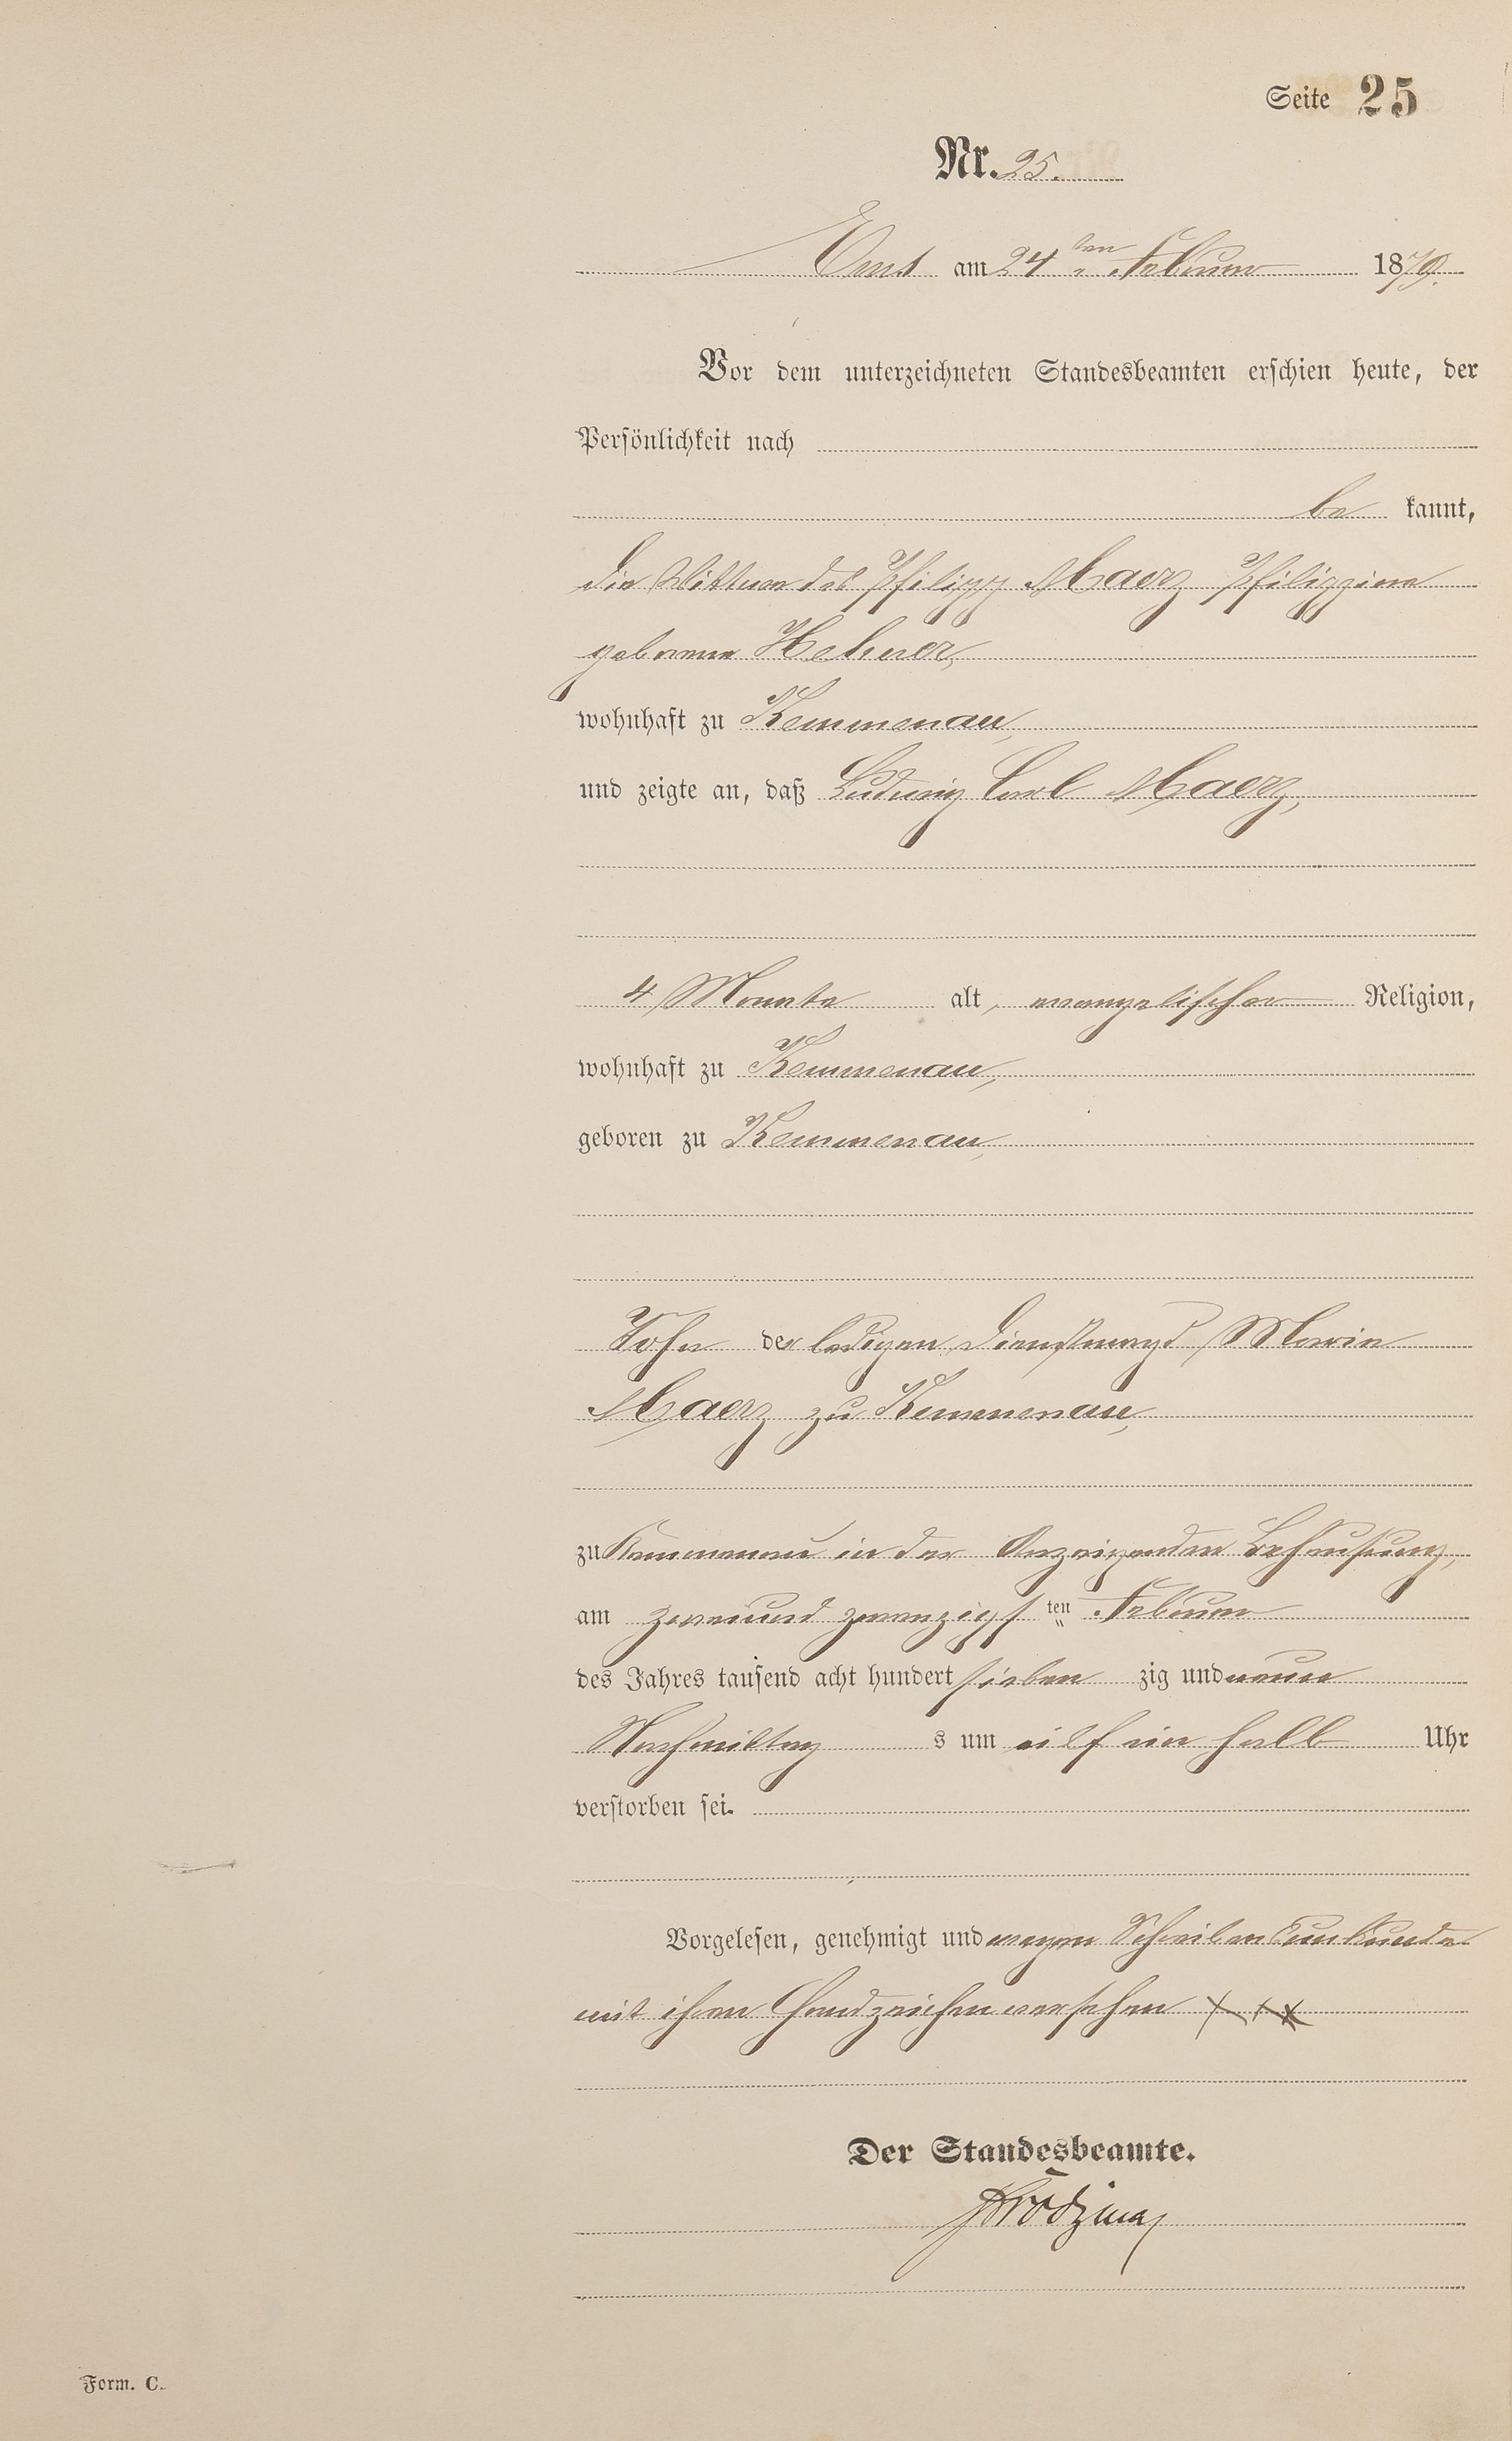 Seite 25
Nr. 25.
Ems am 24ten Februar 1879.
Vor dem unterzeichneten Standesbeamten erschien heute, der
Persönlichkeit nach
be kannt,
die Wittwe des Philipp Maerz Philippine
geborene Hehner,
wohnhaft zu Kemmenau,
und zeigte an, daß Ludwig Carl Maerz,
4 Monate alt, evangelischer Religion,
wohnhaft zu Kemmenau,
geboren zu Kemmenau,
Sohn der ledigen Dienstmagd Marie
Maerz zu Kemmenau,
zu Kemmenau in der Anzeigenden Behausung,
am zweiund zwanzigsten Februar
des Jahres tausend acht hundert sieben zig und neun
Nachmittag s um eilf ein halb Uhr
verstorben sei.
Vorgelesen, genehmigt und wegen Schreibens Unkunde
mit ihrem Handzeichen versehen XXX
Der Standesbeamte.
Form. C.